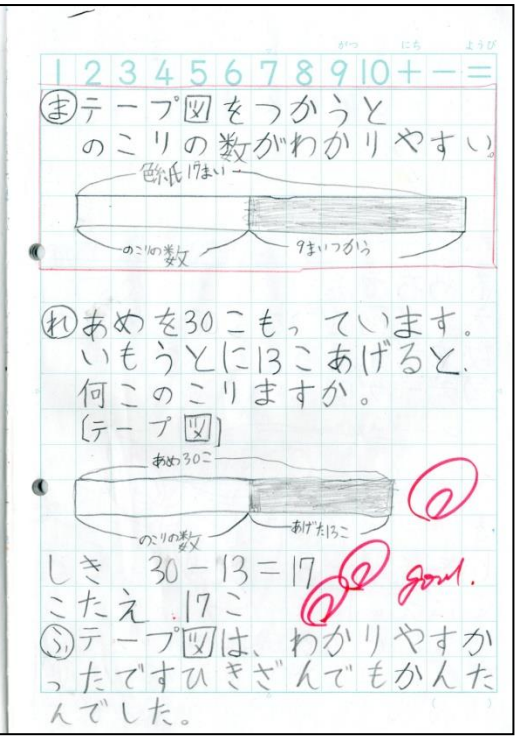 がつ にち ようび
1 2 3 4 5 6 7 8 9 10 + − =
㋮テープ図をつかうと
のこりの数がわかりやすい。
色紙17まい
のこりの数 9まいつかう
㋹あめを30こもっています。
いもうとに13こあげると、
何このこりますか。
[テープ図]
あめ30こ
のこりの数 あげた13こ
しき 30−13=17
こたえ 17こ
good.
ふテープ図は、わかりやすか
ったですひきざんでもかんた
んでした。